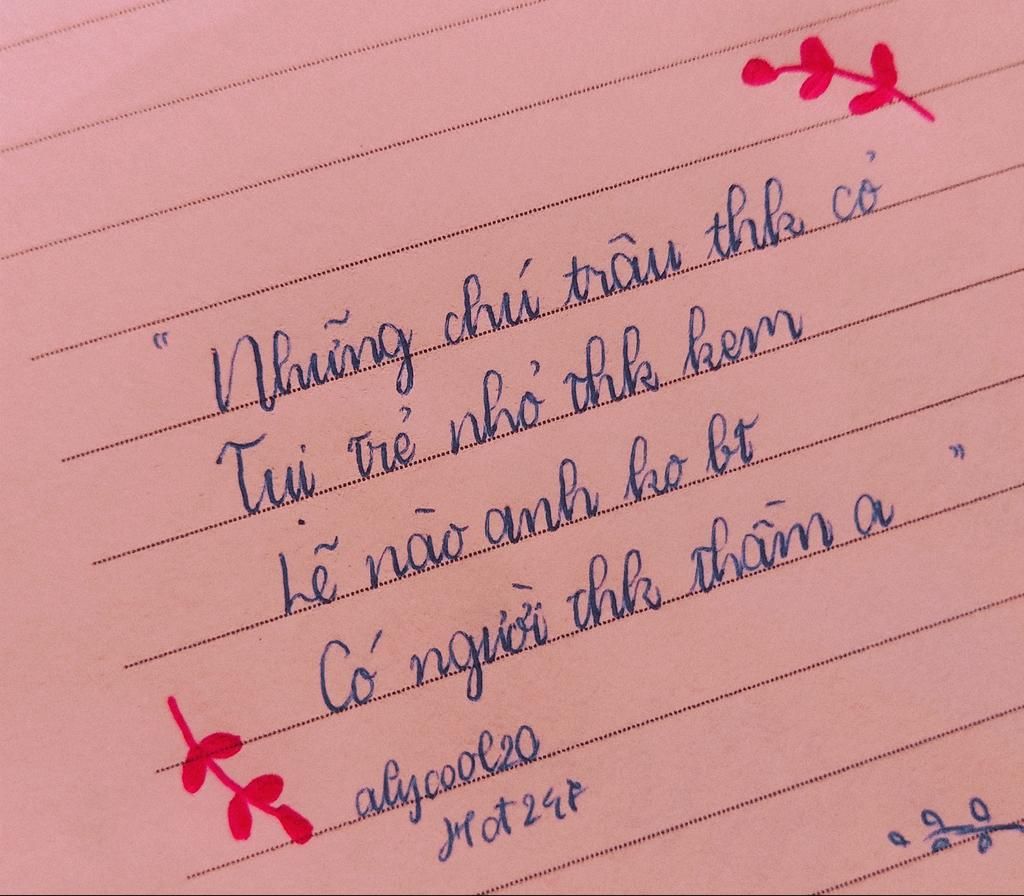 “ Những chú trâu thk cỏ
Tụi trẻ nhỏ thk kem
Lẽ nào anh ko bt
Có người thk thầm a ”
alycool20
Hot24h